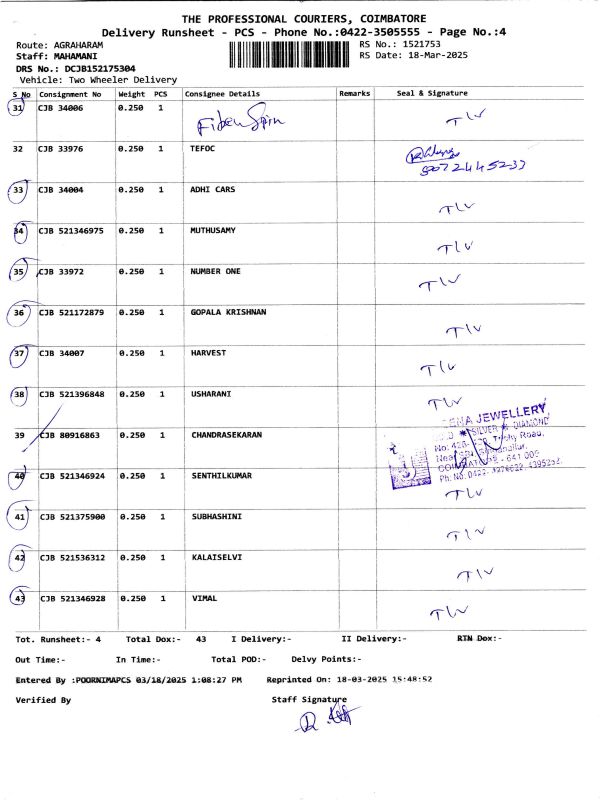 THE PROFESSIONAL COURIERS, COIMBATORE
Delivery Runsheet - PCS - Phone No.:0422-3505555 - Page No.:4
Route: AGRAHARAM RS No.: 1521753
Staff: MAHAMANI RS Date: 18-Mar-2025
DRS No.: DCJB152175304
Vehicle: Two Wheeler Delivery
S No Consignment No Weight PCS Consignee Details Remarks Seal & Signature
31 CJB 34006 0.250 1 TLV
32 CJB 33976 0.250 1 TEFOC
33 CJB 34004 0.250 1 ADHI CARS TLV
34 CJB 521346975 0.250 1 MUTHUSAMY TLV
35 CJB 33972 0.250 1 NUMBER ONE TLV
36 CJB 521172879 0.250 1 GOPALA KRISHNAN TLV
37 CJB 34007 0.250 1 HARVEST TLV
38 CJB 521396848 0.250 1 USHARANI TLV
JEWELLERY
SILVER & DIAMOND
39 CJB 80916863 0.250 1 CHANDRASEKARAN
Road,
641 005
40 CJB 521346924 0.250 1 SENTHILKUMAR TLV
41 CJB 521375900 0.250 1 SUBHASHINI TLV
42 CJB 521536312 0.250 1 KALAISELVI TLV
43 CJB 521346928 0.250 1 VIMAL TLV
Tot. Runsheet:- 4 Total Dox:- 43 I Delivery:- II Delivery:- RTN Dox:-
Out Time:- In Time:- Total POD:- Delvy Points:-
Entered By :POORNIMAPCS 03/18/2025 1:08:27 PM Reprinted On: 18-03-2025 15:48:52
Verified By Staff Signature